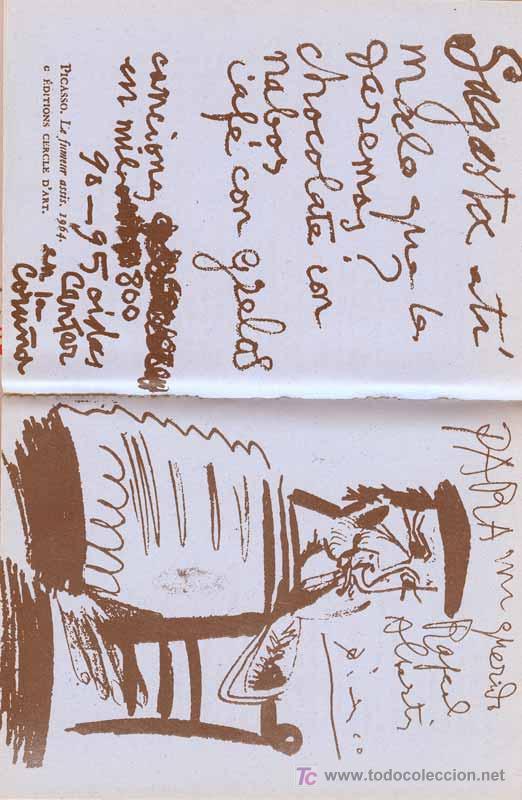 Sagasta a ti
malo que la
haremos?
chocolate con
nabos
café con grelos
canciones
en mil 800
90 — 95 oidas
Cantar
en la
Coruña
PICASSO. Le fumeur assis. 1964.
© ÉDITIONS CERCLE D'ART.
PARA mi querido
Rafael
Alberti
Picasso
TC www.todocoleccion.net